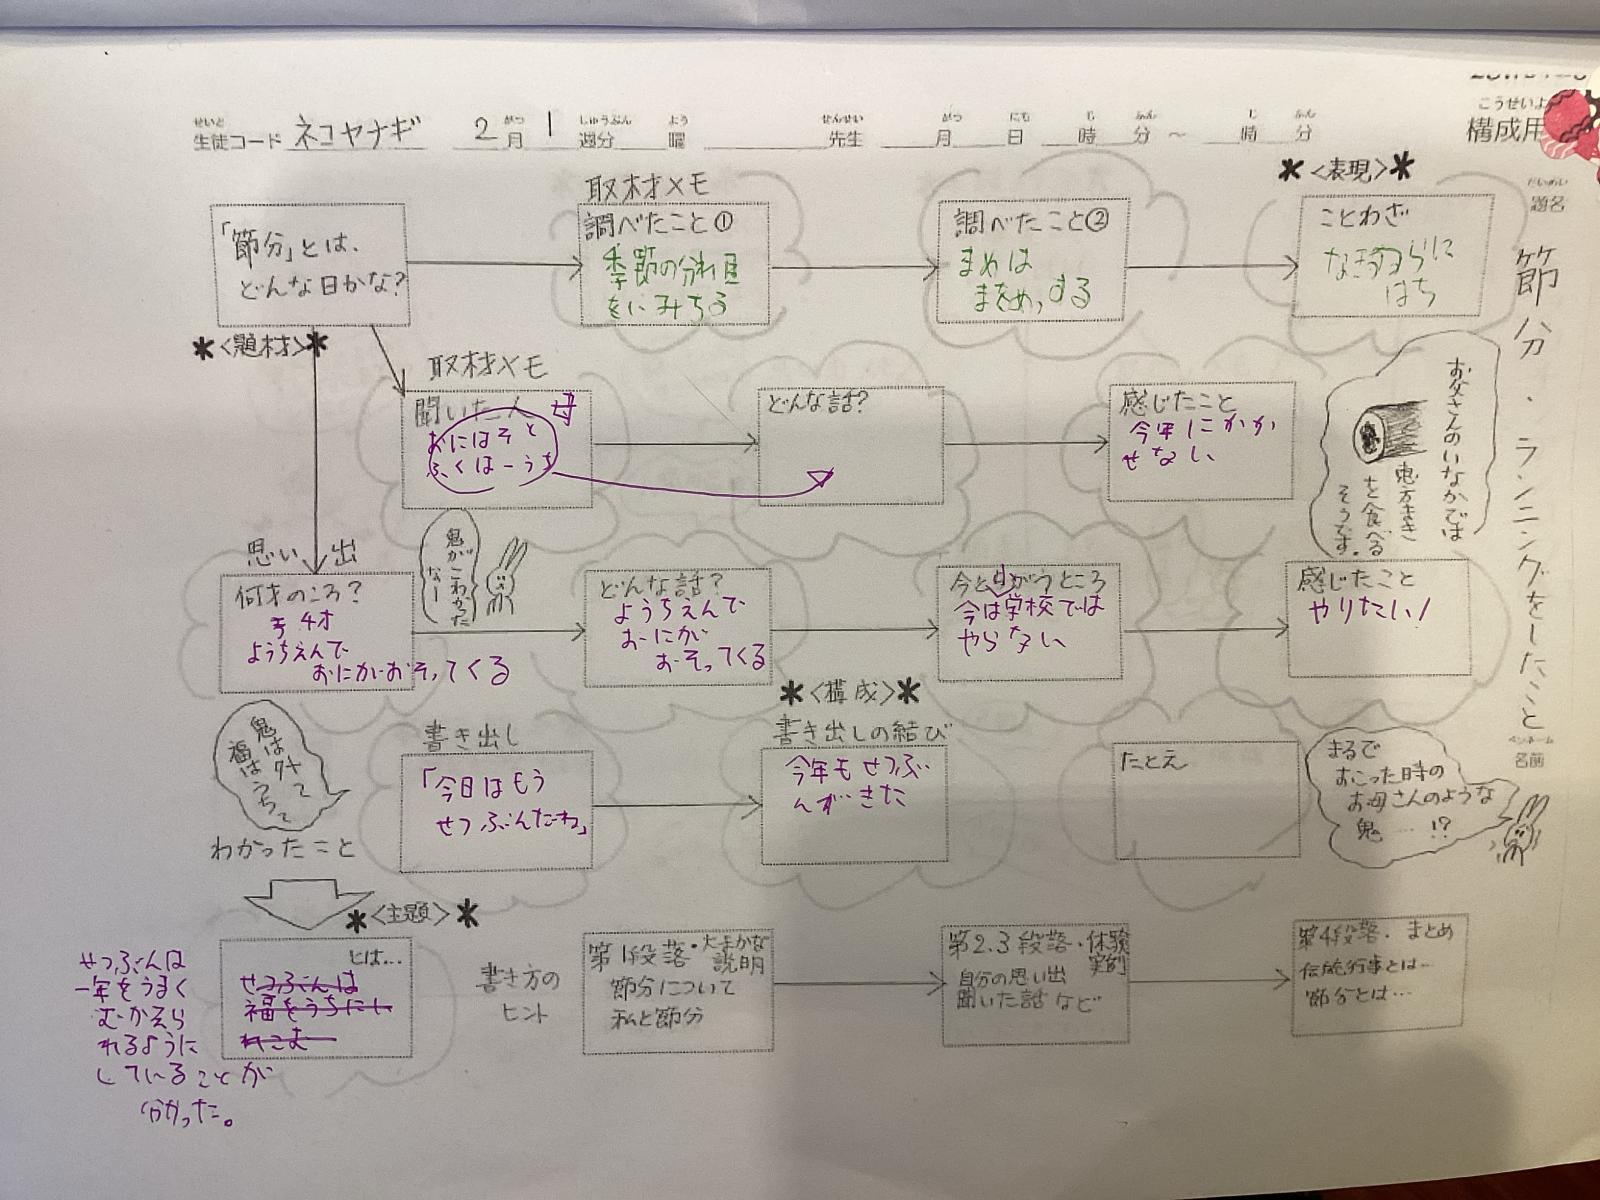 こうせいよ
構成用
せいと がつ しゅうぶん よう せんせい がつ にち じ ふん じ ふん
生徒コード ネコヤナギ 2月 1週分 曜 先生 月 日 時 分 ～ 時 分
だいめい
題名
節分・ランニングをしたこと
ペンネーム
名前
「節分」とは、
どんな日かな?
＊<題材>＊
取材メモ
調べたこと①
季節の分れ目
調べたこと②
まめは
＊<表現>＊
ことわざ
はち
取材メモ
聞いた人 母
おにはそと
ふくはーうち
どんな話?
感じたこと
今年にかか
せない
お父さんのいなかでは
恵方まき
を食べる
そうです。
思い出
何才のころ?
4才
ようちえんで
おにがおそってくる
鬼がこわかった
なー
どんな話?
ようちえんで
おにが
おそってくる
今とちがうところ
今は学校では
やらない
感じたこと
やりたい!
＊<構成>＊
鬼は外って
福はうちって
わかったこと
書き出し
「今日はもう
せつぶんだね」
書き出しの結び
今年もせつぶ
んがきた
たとえ
まるで
おこった時の
お母さんのような
鬼……!?
＊<主題>＊
とは…
せつぶんは
福をうちにい
せつぶんは
一年をうまく
むかえら
れるように
していることが
分かった。
書き方の
ヒント
第1段落・大まかな
説明
節分について
私と節分
第2.3段落・体験
実例
自分の思い出
聞いた話など
第4段落・まとめ
伝統行事とは…
節分とは…